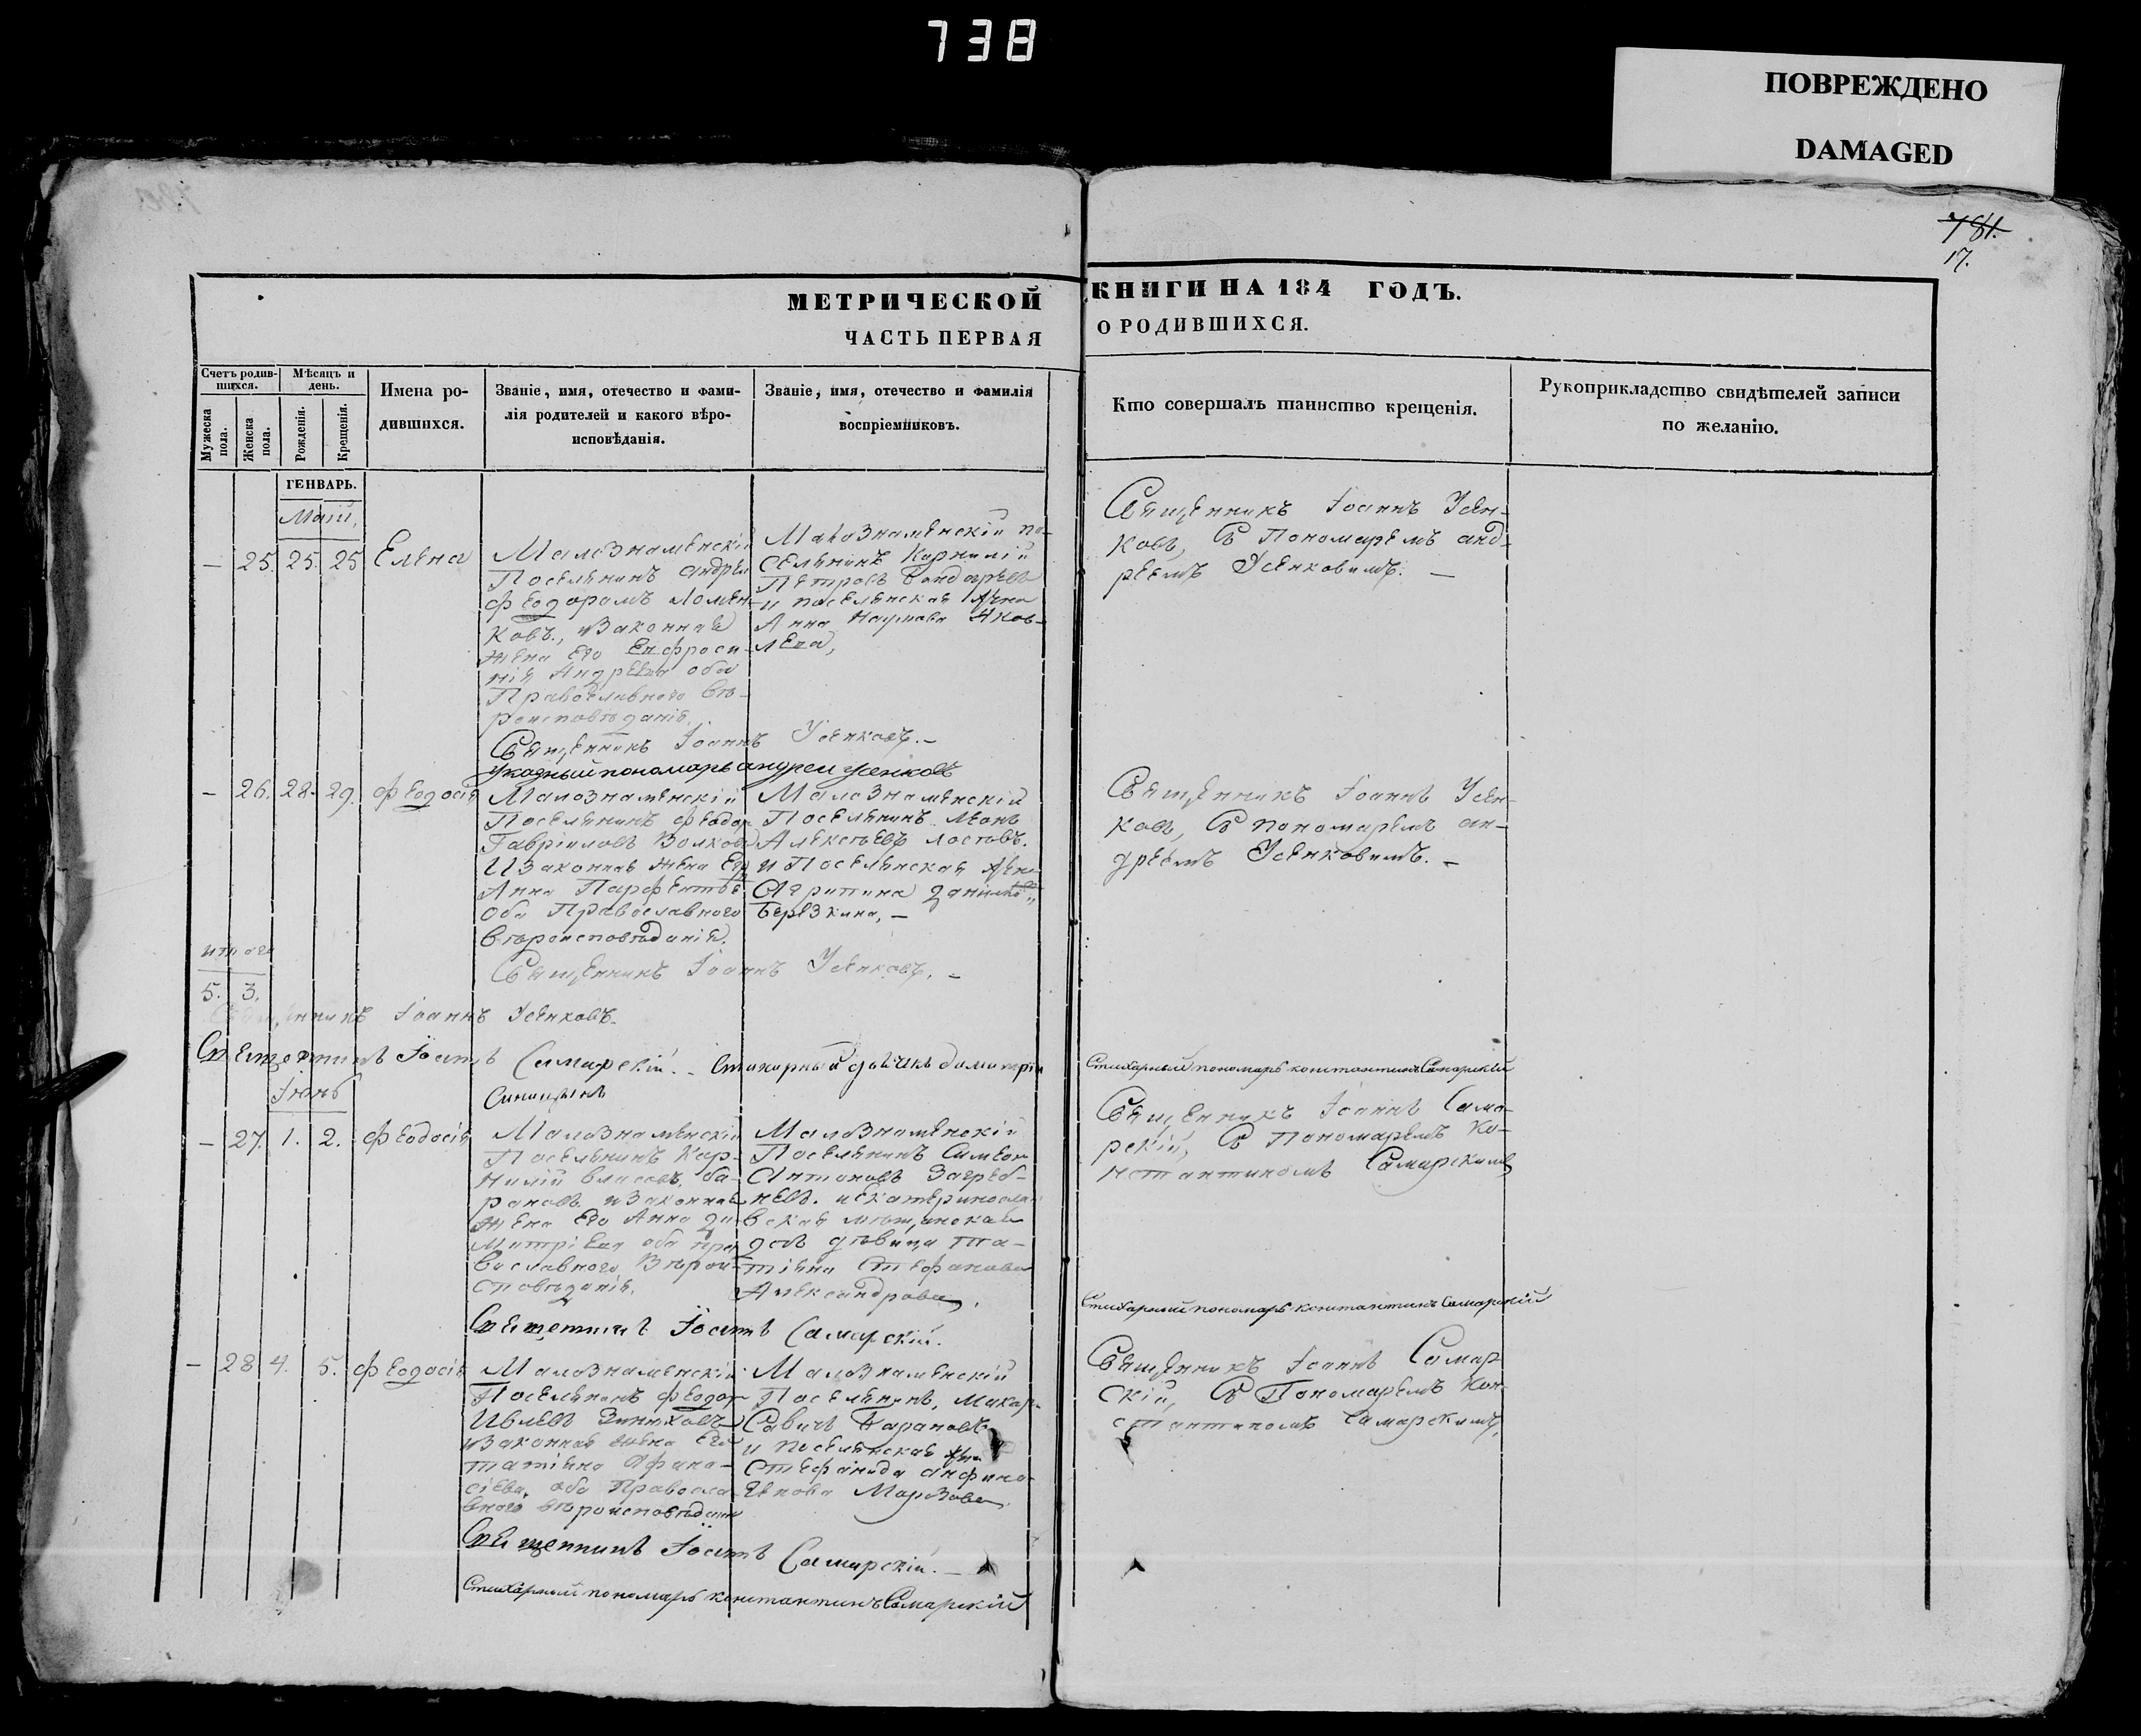 738
ПОВРЕЖДЕНО
DAMAGED
781.
17.
МЕТРИЧЕСКОЙ КНИГИ НА 184 ГОДЪ.
ЧАСТЬ ПЕРВАЯ О РОДИВШИХСЯ.
Счетъ родив-
шихся.
Мѣсяцъ и
день.
Мужеска
пола.
Женска
пола.
Рожденія.
Крещенія.
Имена ро-
дившихся.
Званіе, имя, отечество и фами-
лія родителей и какого вѣро-
исповѣданія.
Званіе, имя, отечество и фамилія
воспріемниковъ.
Кто совершалъ таинство крещенія.
Рукоприкладство свидѣтелей записи
по желанію.
ГЕНВАРЬ.
Маій,
— 25. 25. 25 Елена
Малознаменскій
Поселянинъ Андрей
Феодоромъ
ковъ, и законная
жена его Евфроси-
нія Андреева оба
Православнаго вѣ-
роисповѣданія.
Малознаменскій по-
селянинъ Корнилій
Петровъ Бондаревъ
и поселянская жена
Анна Наумова Яков-
лева,
Священникъ Іоаннъ Усен-
ковъ, съ Пономаремъ анд-
реемъ Усенковимъ. —
Священникъ Іоаннъ Усенковъ. —
Указный пономарь андреи усенковъ
— 26. 28. 29. Феодосія
Малознаменскій
Поселянинъ Феодор
Гавріиловъ Волковъ
И Законная жена Его
Анна
оба Православнаго
вѣроисповѣданія.
Малознаменскій
Поселянинъ Леонъ
Алексѣевъ
и Поселянская жена
Агрипина
Березкина, —
Священникъ Іоаннъ Усен-
ковъ, съ пономаремъ ан-
дреемъ Усенковимъ. —
Священникъ Іоаннъ Усенковъ. —
итого
5. 3.
Священникъ Іоаннъ Усенковъ.
Священникъ Іоаннъ Самарскій. — Стихарный дьячикъ
Синицынъ
Стихарный пономарь константинъ Самарскій
Іюнь
— 27. 1. 2. Феодосія
Малознаменскій
Поселянинъ Кор-
нилій Власовъ, ба-
рановъ и законная
жена Его Анна Ди-
митріева оба пра
вославнаго Вѣрои
сповѣданія.
Малознаменскій
Поселянинъ Симеон
Антоновъ Загреб-
невъ. и екатеринослав
вская мѣщанская
дочь дѣвица Та-
тіяна Стефанова
Александрова,
Священникъ Іоаннъ Сама-
рскій, съ Пономаремъ Ко-
нстантиномъ Самарскимъ
Священникъ Іоаннъ Самарскій.
Стихарный пономарь константинъ Самарскій
— 28 4. 5. Феодосія
Малознаменскій
Поселянинъ Феодор
Ивлевъ
и Законная жена Его
татіяна Афана-
сіева, оба Правосла
внаго вѣроисповѣдані
Малознаменскій
Поселянинъ, Макар
Савичъ Тарановъ
и поселянская жена
Стефанида
Марзова
Священникъ Іоаннъ Самар
скій, съ Пономаремъ Кон-
стантиномъ Самарскимъ,
Священникъ Іоаннъ Самарскій. —
Стихарный пономарь константинъ Самарскій